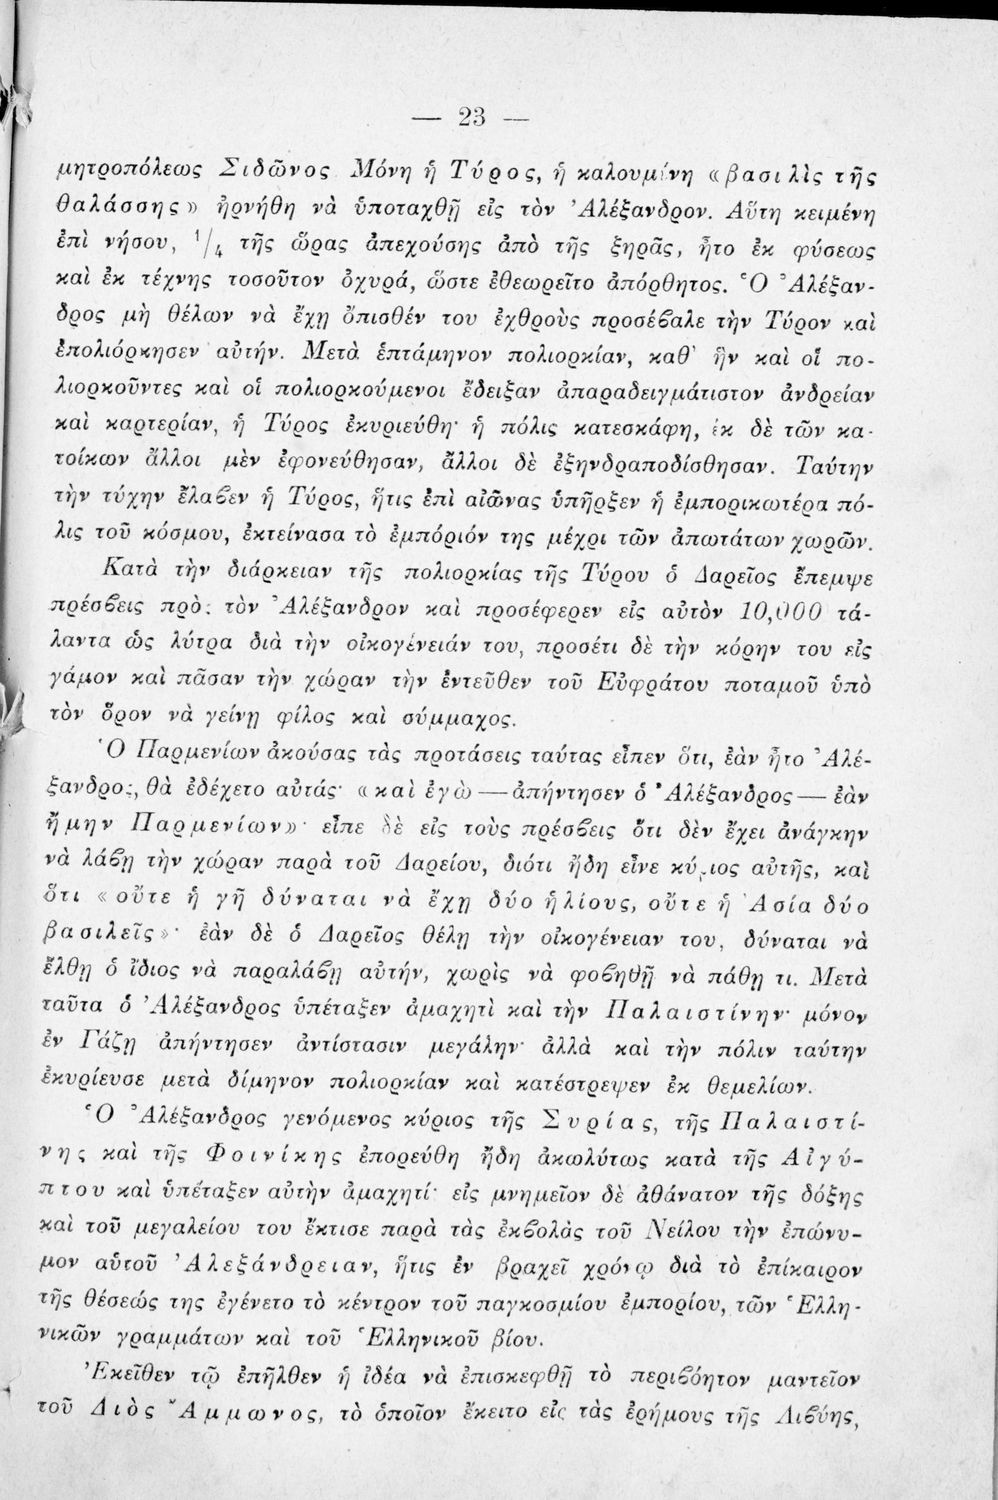 — 23 —
μητροπόλεως Σιδῶνος Μόνη ἡ Τύρος, ἡ καλουμένη «βασιλὶς τῆς
θαλάσσης» ἠρνήθη νὰ ὑποταχθῇ εἰς τὸν Ἀλέξανδρον. Αὕτη κειμένη
ἐπὶ νήσου, 1/4 τῆς ὥρας ἀπεχούσης ἀπὸ τῆς ξηρᾶς, ἦτο ἐκ φύσεως
καὶ ἐκ τέχνης τοσοῦτον ὀχυρά, ὥστε ἐθεωρεῖτο ἀπόρθητος. Ὁ Ἀλέξαν-
δρος μὴ θέλων νὰ ἔχῃ ὄπισθέν του ἐχθροὺς προσέβαλε τὴν Τύρον καὶ
ἐπολιόρκησεν αὐτήν. Μετὰ ἑπτάμηνον πολιορκίαν, καθ' ἣν καὶ οἱ πο-
λιορκοῦντες καὶ οἱ πολιορκούμενοι ἔδειξαν ἀπαραδειγμάτιστον ἀνδρείαν
καὶ καρτερίαν, ἡ Τύρος ἐκυριεύθη· ἡ πόλις κατεσκάφη, ἐκ δὲ τῶν κα-
τοίκων ἄλλοι μὲν ἐφονεύθησαν, ἄλλοι δὲ ἐξηνδραποδίσθησαν. Ταύτην
τὴν τύχην ἔλαβεν ἡ Τύρος, ἥτις ἐπὶ αἰῶνας ὑπῆρξεν ἡ ἐμπορικωτέρα πό-
λις τοῦ κόσμου, ἐκτείνασα τὸ ἐμπόριόν της μέχρι τῶν ἀπωτάτων χωρῶν.
Κατὰ τὴν διάρκειαν τῆς πολιορκίας τῆς Τύρου ὁ Δαρεῖος ἔπεμψε
πρέσβεις πρὸς τὸν Ἀλέξανδρον καὶ προσέφερεν εἰς αὐτὸν 10,000 τά-
λαντα ὡς λύτρα διὰ τὴν οἰκογένειάν του, προσέτι δὲ τὴν κόρην του εἰς
γάμον καὶ πᾶσαν τὴν χώραν τὴν ἐντεῦθεν τοῦ Εὐφράτου ποταμοῦ ὑπὸ
τὸν ὅρον νὰ γείνῃ φίλος καὶ σύμμαχος.
Ὁ Παρμενίων ἀκούσας τὰς προτάσεις ταύτας εἶπεν ὅτι, ἐὰν ἦτο Ἀλέ-
ξανδρος, θὰ ἐδέχετο αὐτάς· «καὶ ἐγὼ — ἀπήντησεν ὁ Ἀλέξανδρος — ἐὰν
ἤμην Παρμενίων»· εἶπε δὲ εἰς τοὺς πρέσβεις ὅτι δὲν ἔχει ἀνάγκην
νὰ λάβῃ τὴν χώραν παρὰ τοῦ Δαρείου, διότι ἤδη εἶνε κύριος αὐτῆς, καὶ
ὅτι «οὔτε ἡ γῆ δύναται νὰ ἔχῃ δύο ἡλίους, οὔτε ἡ Ἀσία δύο
βασιλεῖς»· ἐὰν δὲ ὁ Δαρεῖος θέλῃ τὴν οἰκογένειαν του, δύναται νὰ
ἔλθῃ ὁ ἴδιος νὰ παραλάβῃ αὐτήν, χωρὶς νὰ φοβηθῇ νὰ πάθῃ τι. Μετὰ
ταῦτα ὁ Ἀλέξανδρος ὑπέταξεν ἀμαχητὶ καὶ τὴν Παλαιστίνην· μόνον
ἐν Γάζῃ ἀπήντησεν ἀντίστασιν μεγάλην· ἀλλὰ καὶ τὴν πόλιν ταύτην
ἐκυρίευσε μετὰ δίμηνον πολιορκίαν καὶ κατέστρεψεν ἐκ θεμελίων.
Ὁ Ἀλέξανδρος γενόμενος κύριος τῆς Συρίας, τῆς Παλαιστί-
νης καὶ τῆς Φοινίκης ἐπορεύθη ἤδη ἀκωλύτως κατὰ τῆς Αἰγύ-
πτου καὶ ὑπέταξεν αὐτὴν ἀμαχητί· εἰς μνημεῖον δὲ ἀθάνατον τῆς δόξης
καὶ τοῦ μεγαλείου του ἔκτισε παρὰ τὰς ἐκβολὰς τοῦ Νείλου τὴν ἐπώνυ-
μον αὑτοῦ Ἀλεξάνδρειαν, ἥτις ἐν βραχεῖ χρόνῳ διὰ τὸ ἐπίκαιρον
τῆς θέσεώς της ἐγένετο τὸ κέντρον τοῦ παγκοσμίου ἐμπορίου, τῶν Ἑλλη-
νικῶν γραμμάτων καὶ τοῦ Ἑλληνικοῦ βίου.
Ἐκεῖθεν τῷ ἐπῆλθεν ἡ ἰδέα νὰ ἐπισκεφθῇ τὸ περιβόητον μαντεῖον
τοῦ Διὸς Ἄμμωνος, τὸ ὁποῖον ἔκειτο εἰς τὰς ἐρήμους τῆς Λιβύης,